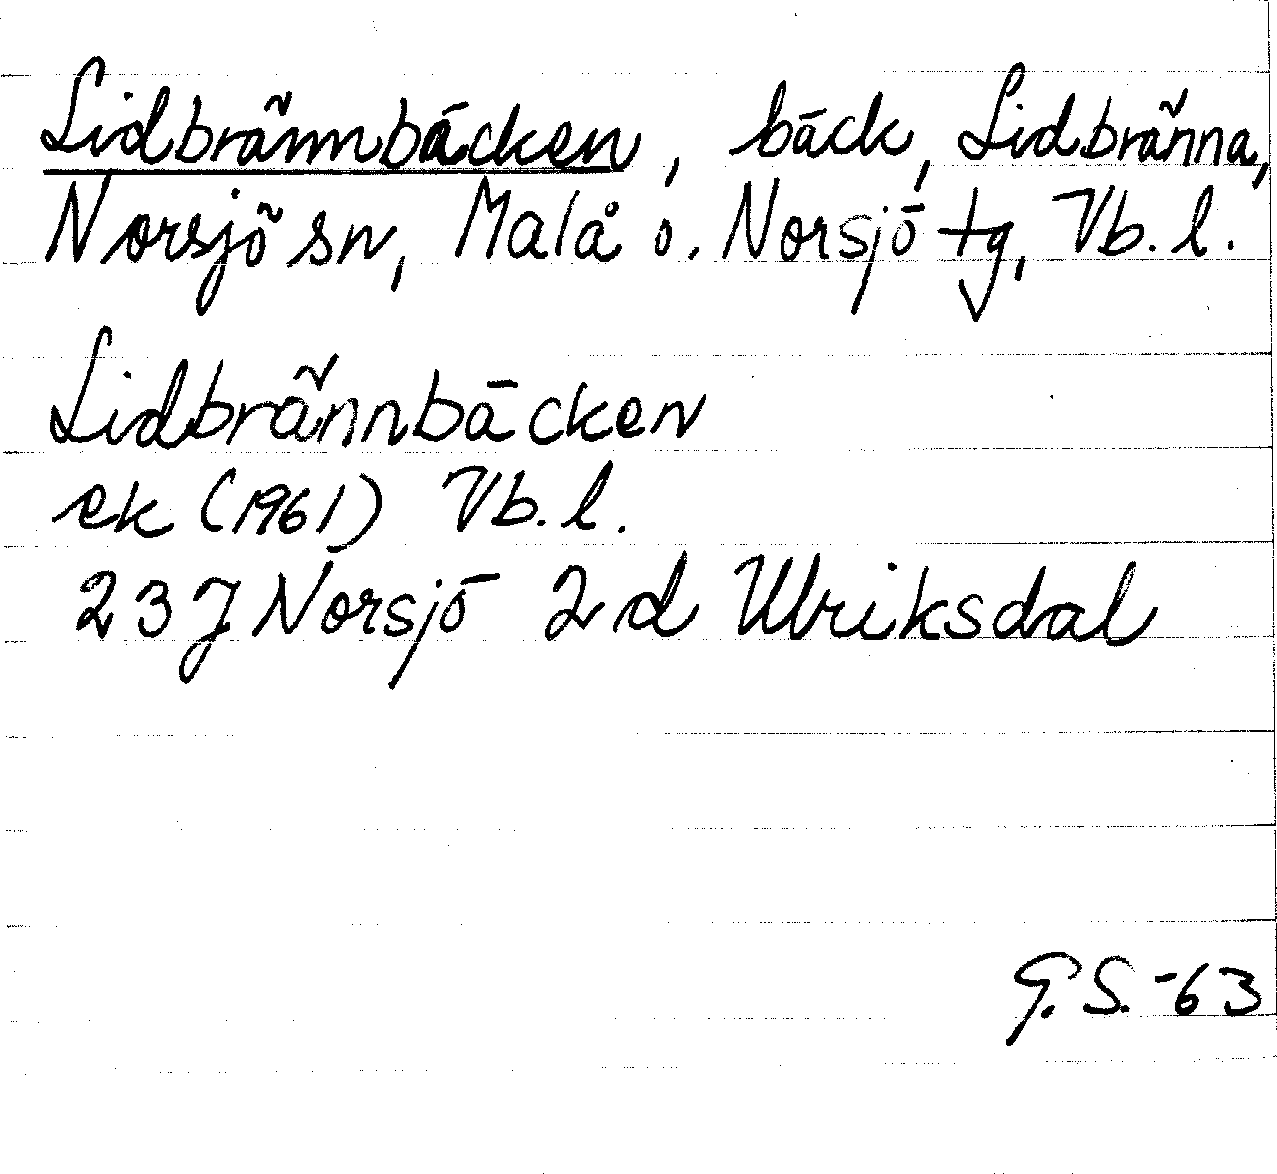 Lidbrännbäcken, bäck, Lidbränna,
Norsjö sn, Malå o. Norsjö tg, Vb. l.
Lidbrännbäcken
ek (1961) Vb. l.
23J Norsjö 2d Ulriksdal
G.S. -63